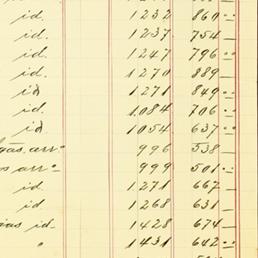 id. 1232 860 "
id. 1237 754 —
id. 1247 796 "
id. 1270 889 —
id. 1271 849 "
id. 1084 706 —
id. 1054 637 "
arr° 996 538 —
arr° 999 501 "
id 1271 667 —
id 1268 631 —
id. 1428 674 —
" 1431 642 "